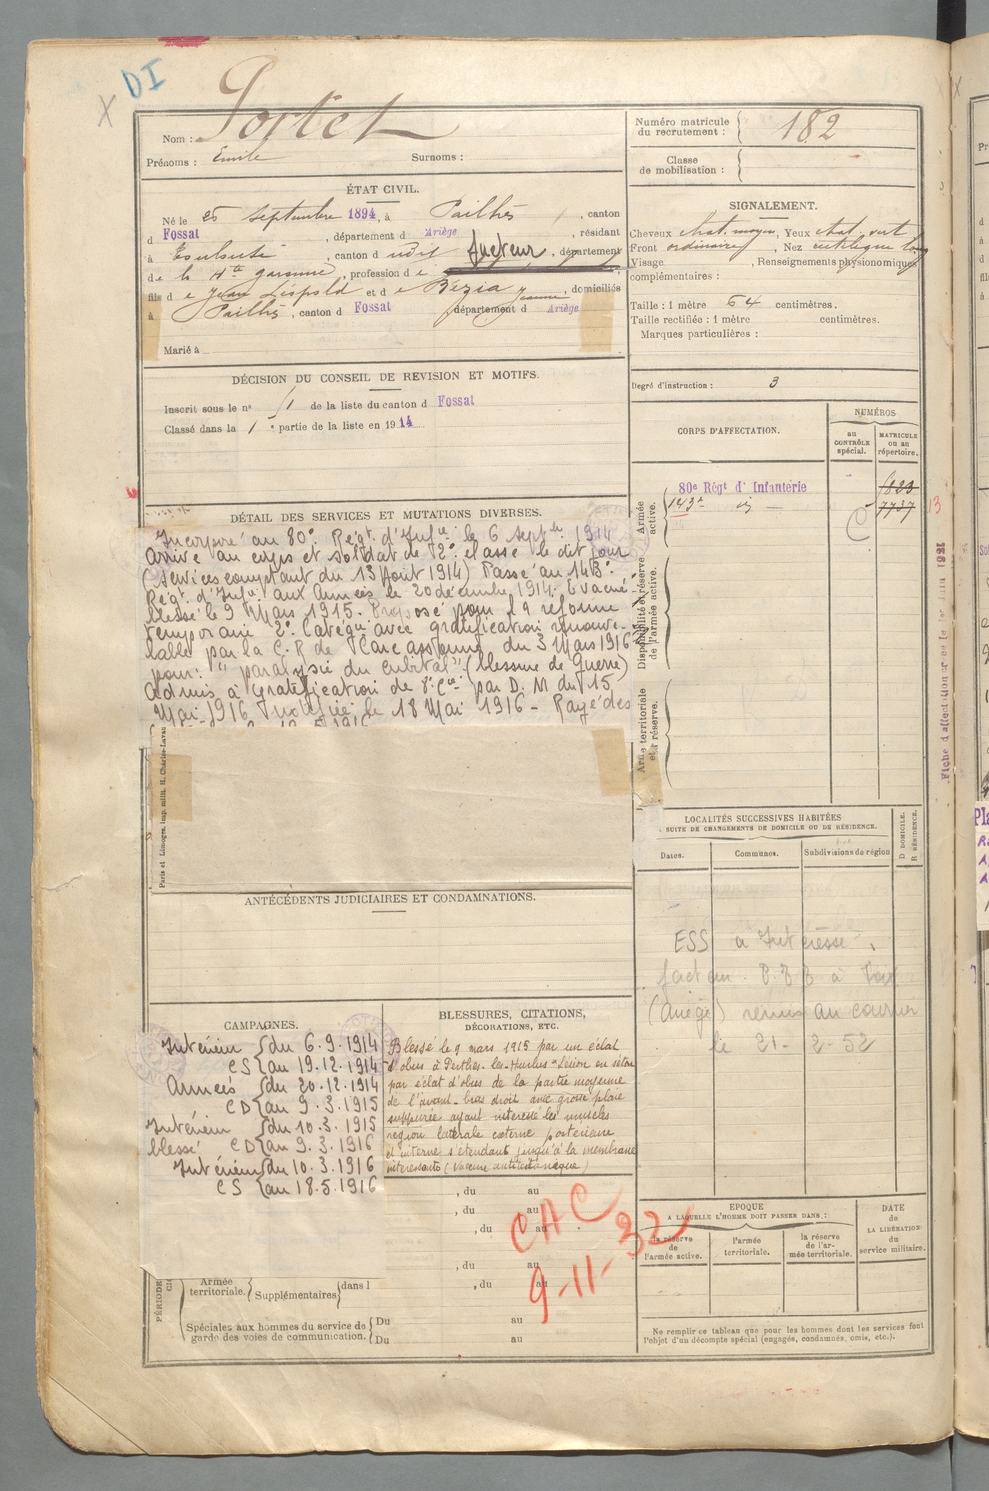 DI
X
Nom : Portet
Prénoms : Emile Surnoms :
Numéro matricule du recrutement : 182
Classe de mobilisation :
ÉTAT CIVIL.
Né le 25 septembre 1894, à Pailhès, canton
d Fossat, département d Ariège, résidant
à Toulouse, canton d udit facteur, département
de la Hte garonne, profession de
fils de Jean Léopold et de Bézia Jeanne, domiciliés
à Pailhès, canton d Fossat département d Ariège
Marié à
SIGNALEMENT.
Cheveux chat. moyen, Yeux chat. vert
Front ordinaire, Nez rectiligne long
Visage , Renseignements physionomiques
complémentaires :
Taille : 1 mètre 64 centimètres.
Taille rectifiée : 1 mètre centimètres.
Marques particulières :
DÉCISION DU CONSEIL DE REVISION ET MOTIFS.
Inscrit sous le n° de la liste du canton d Fossat
Classé dans la 1e partie de la liste en 1914
Degré d'instruction : 3
CORPS D'AFFECTATION.
NUMÉROS
au CONTRÔLE spécial.
MATRICULE ou au répertoire.
Armée active.
80e Régt d'Infanterie
143e
7737
13
C
Disponibilité et réserve de l'armée active.
Armée territoriale et sa réserve.
DÉTAIL DES SERVICES ET MUTATIONS DIVERSES.
Incorporé au 80e Régt d'Infie le 6 septbre 1914
Arrivé au corps et soldat de 2e classe le dit jour
(services comptant du 13 Août 1914) Passé au 143e
Régt d'Infie aux Armées le 20 décembre 1914. Evacué
blessé le 9 Mars 1915. Proposé pour la réforme
temporaire 2e Catégie avec gratification renouve-
lable par la C.R de Carcassonne du 3 Mars 1916
pour : "paralysie du cubital" (blessure de Guerre)
Admis à gratification de 8e Cie par D. M du 15
Mai 1916 notifiée le 18 Mai 1916 - Rayé des
Paris et Limoges. Imp. milit. H. Charles-Lavau
ANTÉCÉDENTS JUDICIAIRES ET CONDAMNATIONS.
LOCALITÉS SUCCESSIVES HABITÉES
SUITE DE CHANGEMENTS DE DOMICILE OU DE RÉSIDENCE.
Dates.
Communes.
Subdivisions de région
D DOMICILE.
R RÉSIDENCE.
ESS à Intéressé
facteur P.T.T à Foix
(Ariège) remis au courrier
le 21-2-52
CAMPAGNES.
Intérieur du 6.9.1914
CS au 19.12.1914
Armées du 20.12.1914
CD au 9.3.1915
Intérieur du 10.3.1915
blessé CD au 9.3.1916
Intérieur du 10.3.1916
CS au 18.5.1916
BLESSURES, CITATIONS,
DÉCORATIONS, ETC.
Blessé le 9 mars 1915 par un éclat
d'obus à Perthes-les-Hurlus "Lésion en séton
par éclat d'obus de la partie moyenne
de l'avant-bras droit avec grosse plaie
suppurée ayant intéressé les muscles
région latérale externe postérieure
et interne s'étendant jusqu'à la membrane
interosseuse (Vaccine antitétanique)
, du au
, du au
, du au
, du au
, du au
CAC
9-11-32
PÉRIODES
Armée territoriale. Supplémentaires dans l
Spéciales aux hommes du service de garde des voies de communication. Du au
Du au
EPOQUE
A LAQUELLE L'HOMME DOIT PASSER DANS :
la réserve de l'armée active.
l'armée territoriale.
la réserve de l'armée territoriale.
DATE de LA LIBÉRATION du service militaire.
Ne remplir ce tableau que pour les hommes dont les services font
l'objet d'un décompte spécial (engagés, condamnés, omis, etc.).